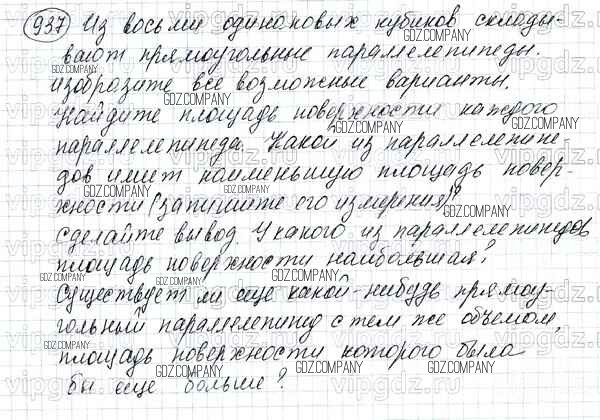 937 Из восьми одинаковых кубиков склады-
вают прямоугольные параллелепипеды.
Изобразите все возможные варианты.
Найдите площадь поверхности каждого
параллелепипеда. Какой из параллелепипе-
дов имеет наименьшую площадь повер-
хности (запишите его измерения)?
Сделайте вывод. У какого из параллелепипедов
площадь поверхности наибольшая?
Существует ли еще какой-нибудь прямоу-
гольный параллелепипед с тем же объемом,
площадь поверхности которого была
бы еще больше?